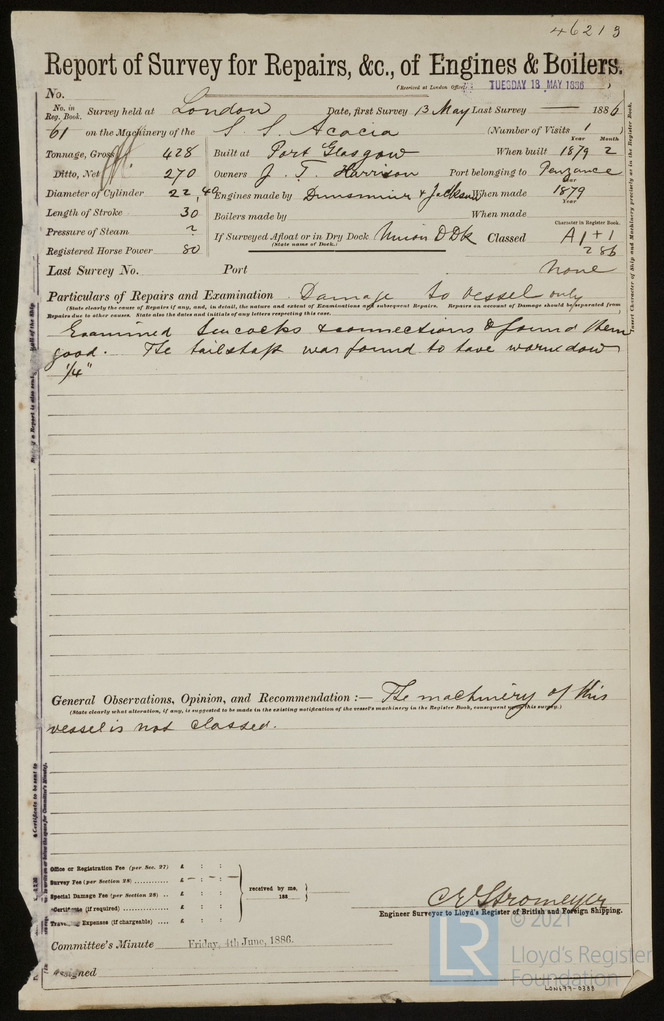 46213
Report of Survey for Repairs, &c., of Engines & Boilers.
(Received at London Office) TUESDAY 18 MAY 1886
No.
No. in Reg. Book. Survey held at London Date, first Survey 13 May Last Survey — 1886
61 on the Machinery of the S S. Acacia (Number of Visits 1 )
Tonnage, Gross 428 Built at Port Glasgow When built Year 1879 Month 2
Ditto, Net 270 Owners J. T. Harrison Port belonging to Penzance
Diameter of Cylinder 22, 40 Engines made by Dunsmuir & Jackson When made Year 1879
Length of Stroke 30 Boilers made by When made Year
Pressure of Steam ? If Surveyed Afloat or in Dry Dock Union DDk Classed Character in Register Book. A1 + 1
(State name of Dock.) 2 86
Registered Horse Power 80
Last Survey No. Port none
Particulars of Repairs and Examination Damage to vessel only
(State clearly the cause of Repairs if any, and, in detail, the nature and extent of Examinations and subsequent Repairs. Repairs on account of Damage should be separated from
Repairs due to other causes. State also the dates and initials of any letters respecting this case.)
Examined Seacocks & connections & found them
good. The tailshaft was found to have worn down
1/4"
General Observations, Opinion, and Recommendation :— The machinery of this
(State clearly what alteration, if any, is suggested to be made in the existing notification of the vessel's machinery in the Register Book, consequent upon this survey.)
vessel is not classed.
Office or Registration Fee (per Sec. 27) £ : :
Survey Fee (per Section 28) £ - : - : -
Special Damage Fee (per Section 28) £ : :
Certificate (if required) £ : :
Travelling Expenses (if chargeable) £ : :
received by me,
188
C E Stromeyer
Engineer Surveyor to Lloyd's Register of British and Foreign Shipping.
Committee's Minute Friday, 4th June, 1886.
Assigned
Insert Character of Ship and Machinery precisely as in the Register Book.
LR
© 2021
Lloyd's Register
Foundation
LON699-0388